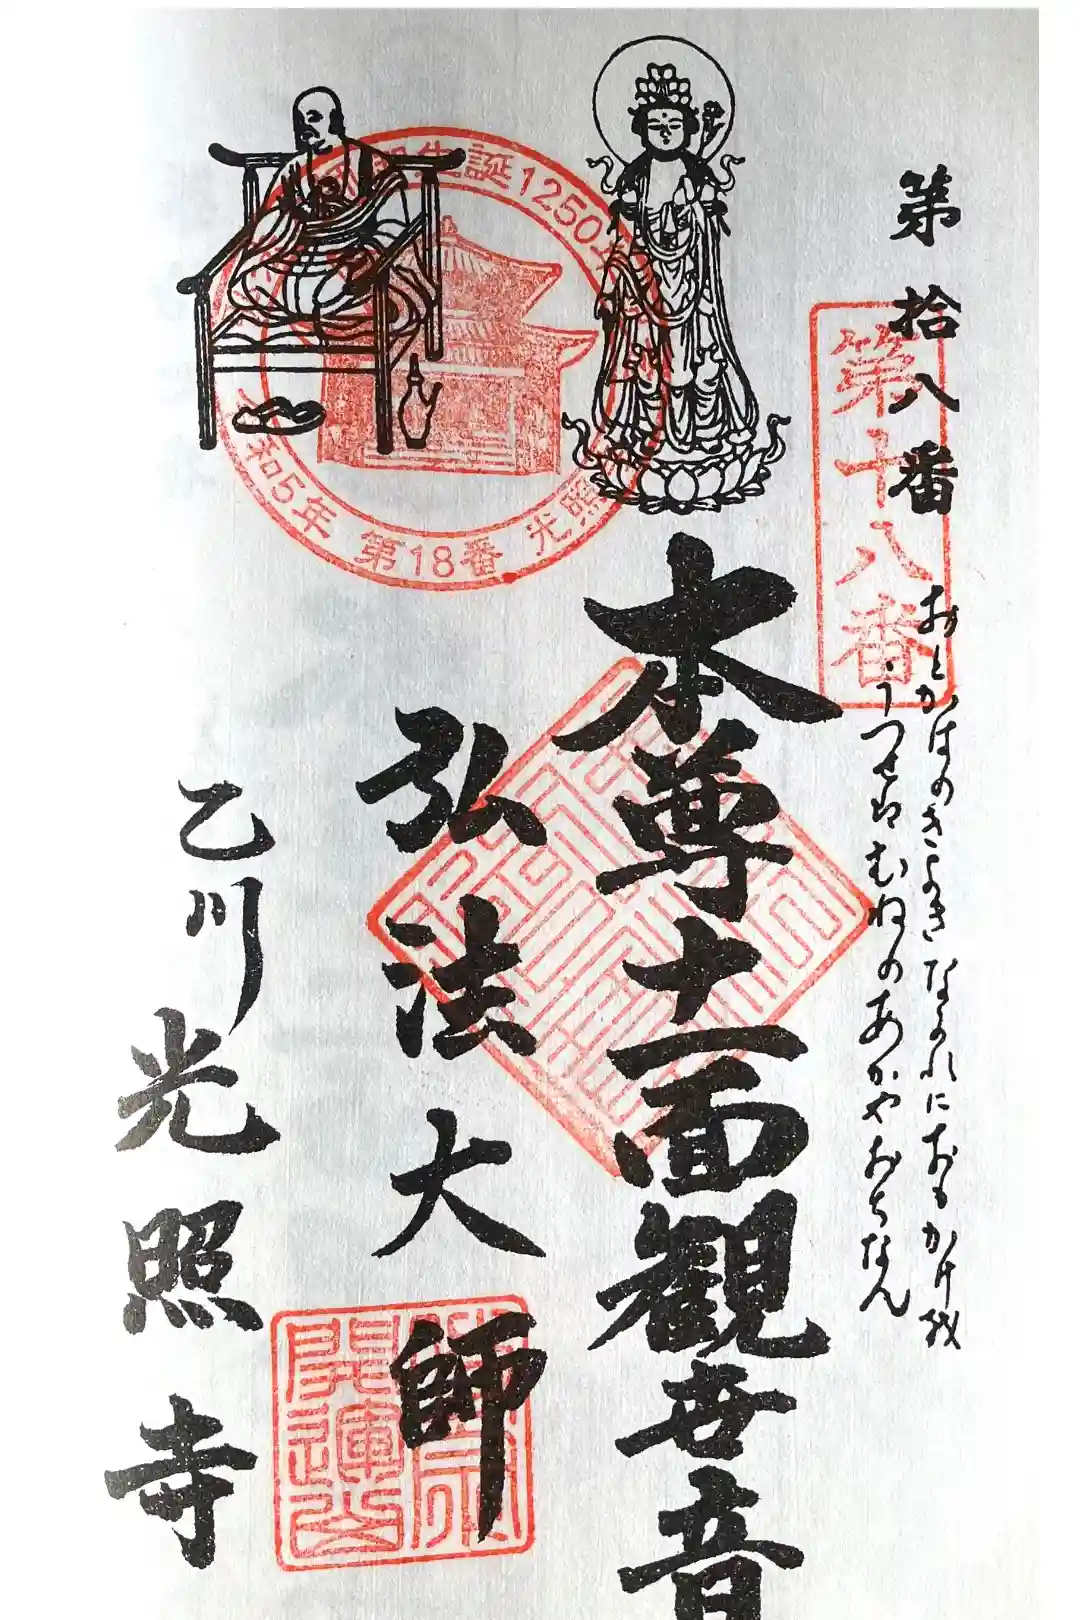 第拾八番
第十八番
おとかはのきよきなかれにおもかけを
うつせはむねのあかやおちなん
本尊十一面観世音
弘法大師
乙川光照寺
生誕1250年
和5年 第18番 光照
開運山